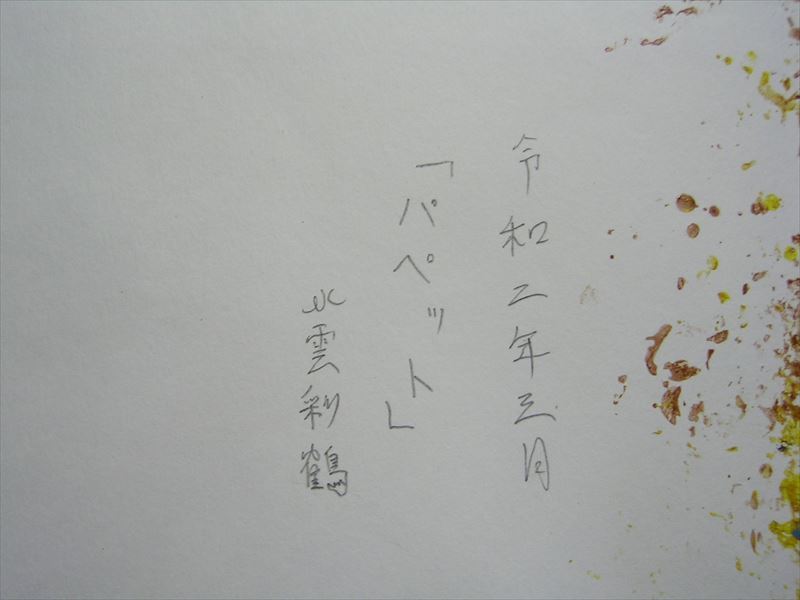 令和二年三月
「パペット」
水雲彩鶴